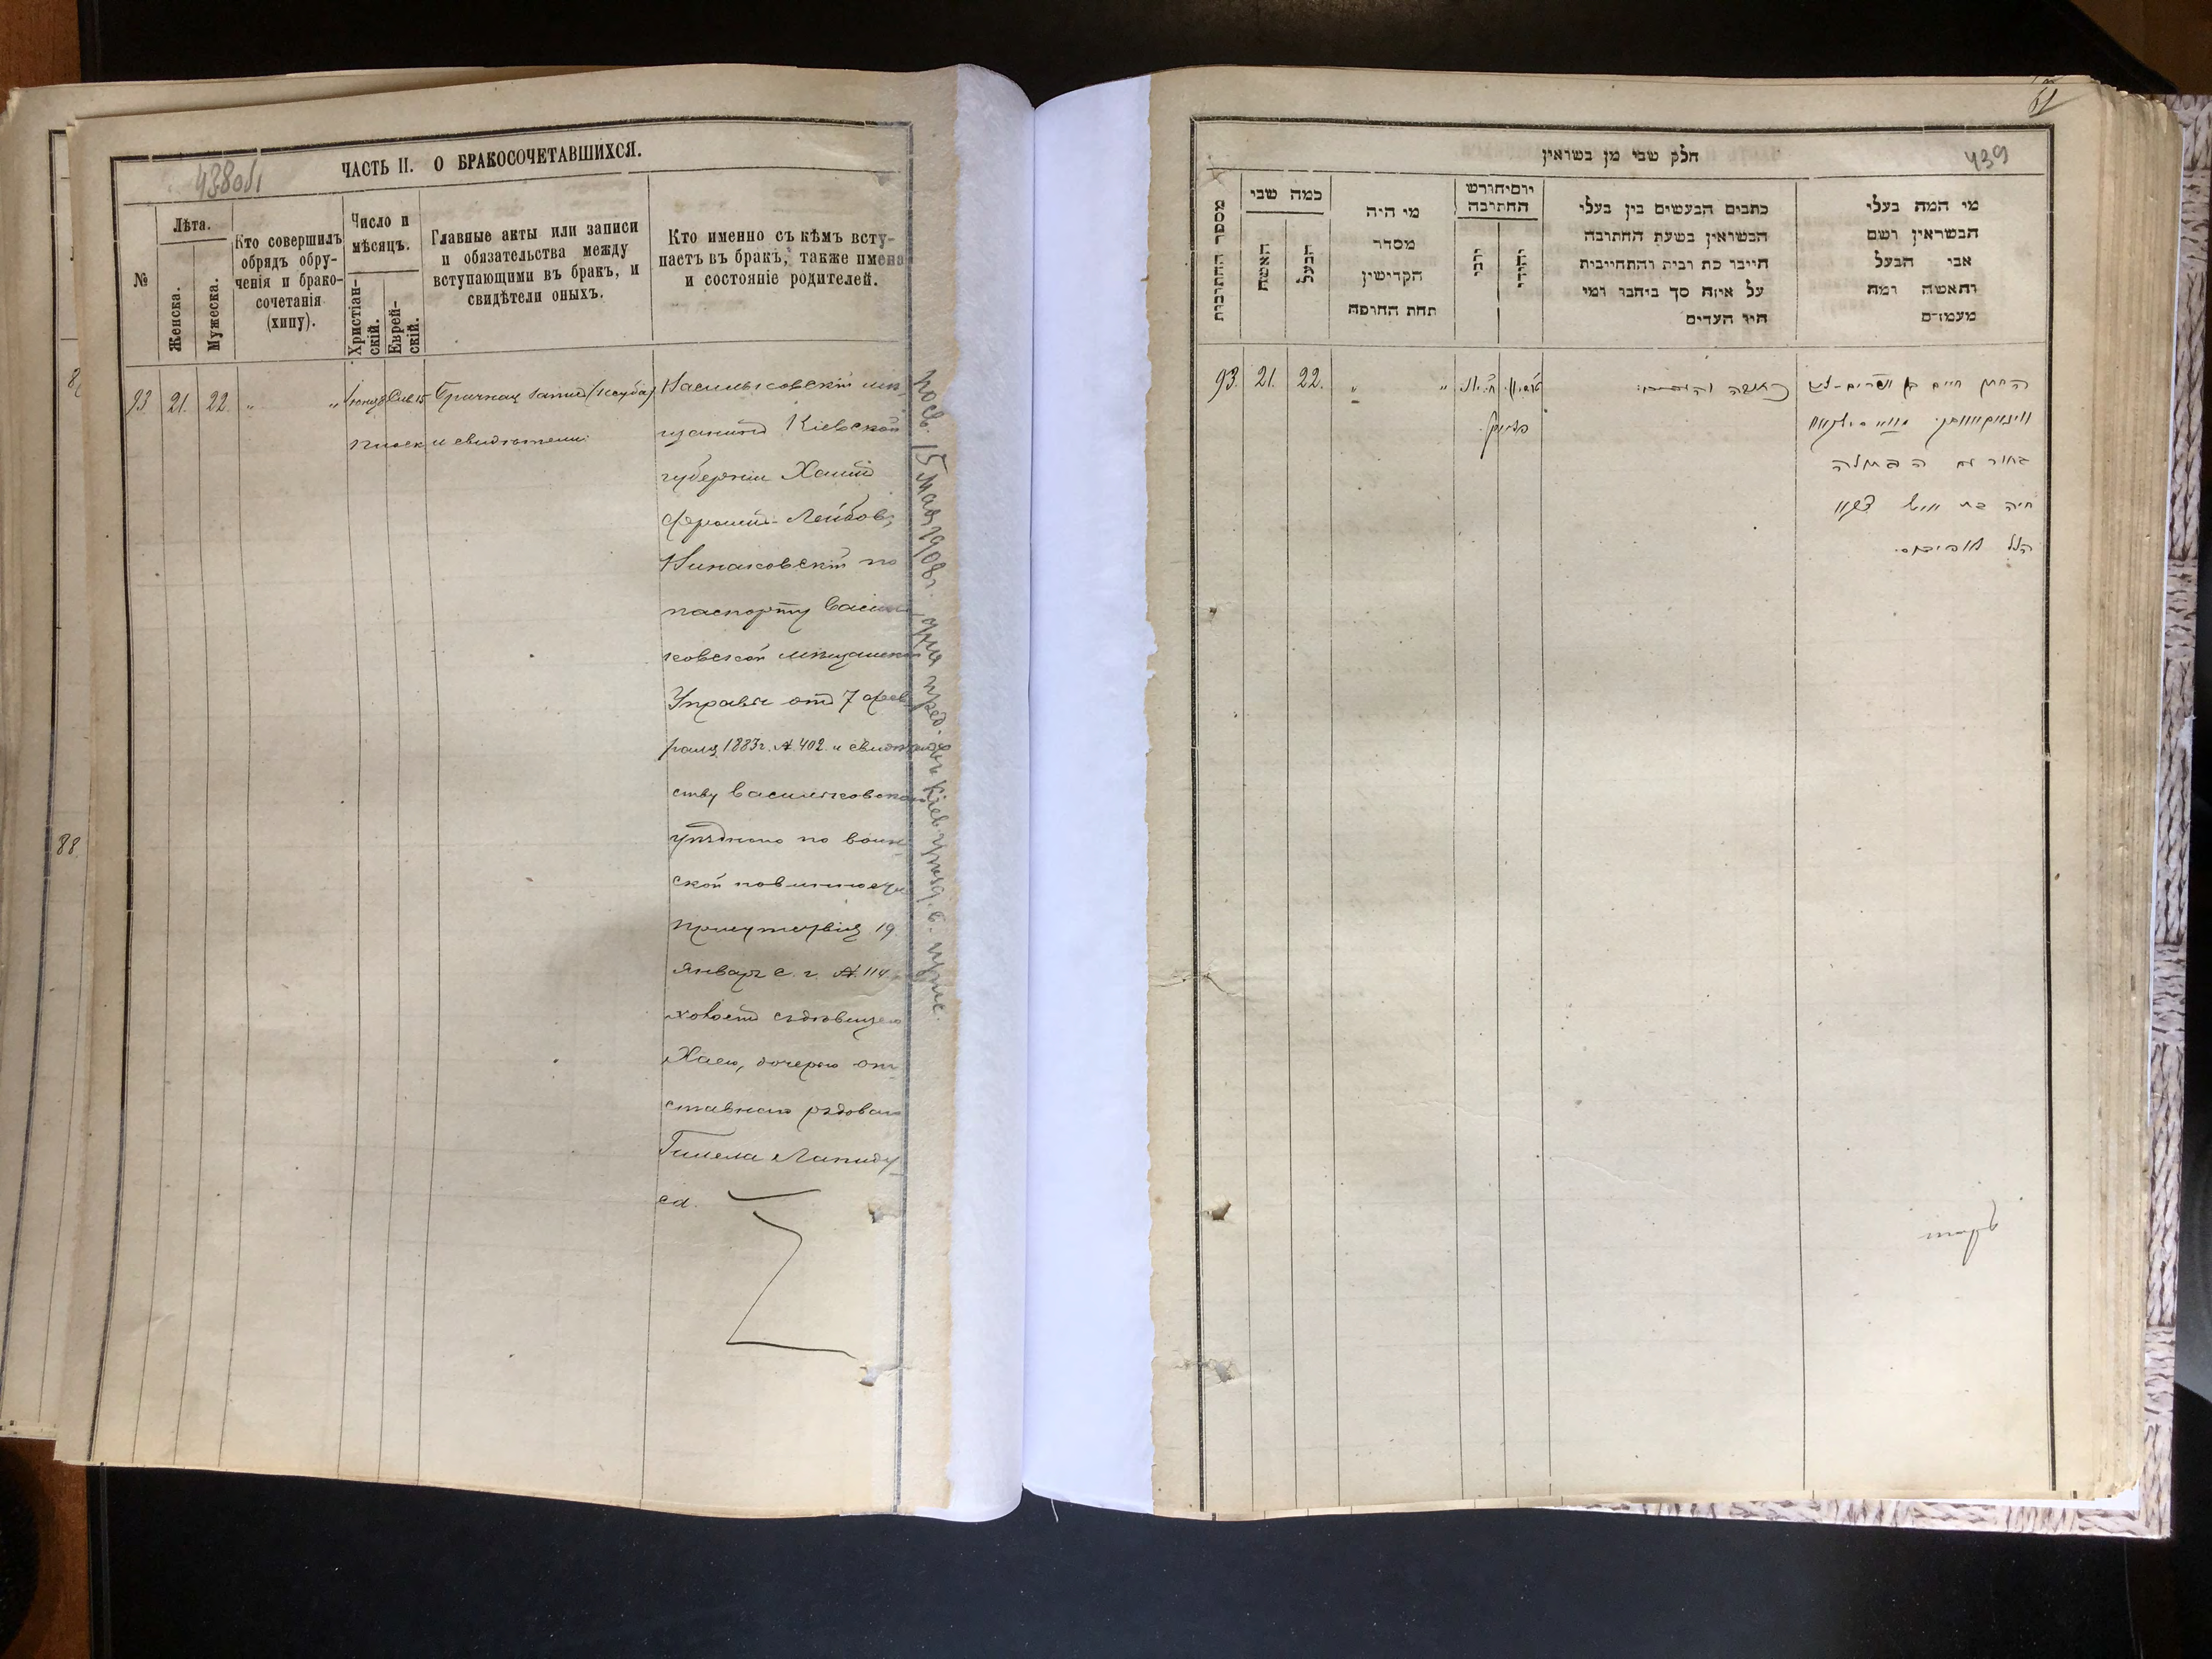 438об
ЧАСТЬ II. О БРАКОСОЧЕТАВШИХСЯ.
№
Лѣта.
Женска.
Мужеска.
Кто совершилъ
обрядъ обру-
ченія и брако-
сочетанія
(хипу).
Число и
мѣсяцъ.
Христіан-
скій.
Еврей-
скій.
Главные акты или записи
и обязательства между
вступающими въ бракъ, и
свидѣтели оныхъ.
Кто именно съ кѣмъ всту-
паетъ въ бракъ, также имена
и состояніе родителей.
93. 21. 22. " "
Брачная запись (Ксуба)
и свидѣтели
Васильковскій мѣ-
щанинъ Кіевской
губерніи Хаимъ
Фроимъ-Лейбовъ
по
паспорту Василь-
ковской мѣщанской
Управы отъ 7 фев-
раля 1883г. №. 402. и свидѣтель-
ству Васильковскаго
уѣзднаго по воин-
ской повинности
присутствія 19
январъ с. г. №. 114
холостъ съ дѣвицею
Хаею, дочерью от-
ставного рядового
Гилела Лапиду-
са.
15 мая 1908г. для пред. въ Кіев. уѣзд. в. прис.
88.
51
439
חלק שני מן נשואין
מספר החתונות
כמה שני
האשה
הבעל
מי היה
מסדר
הקדישין
תחת החופה
יום וחודש
החתונה
כתבים הנעשים בין בעלי
הנשואין בשעת החתונה
חייבו כת ובית והתחייבית
על איזה סך ביחבו ומי
היו העדים
מי המה בעלי
הנשואין ושם
אבי הבעל
והאשה ומה
מעמדם
93. 21. 22. " "
החתן חיים בן אפרים-ליב
בחור עם הבתולה
חיה בת
הלל לאפידוס.